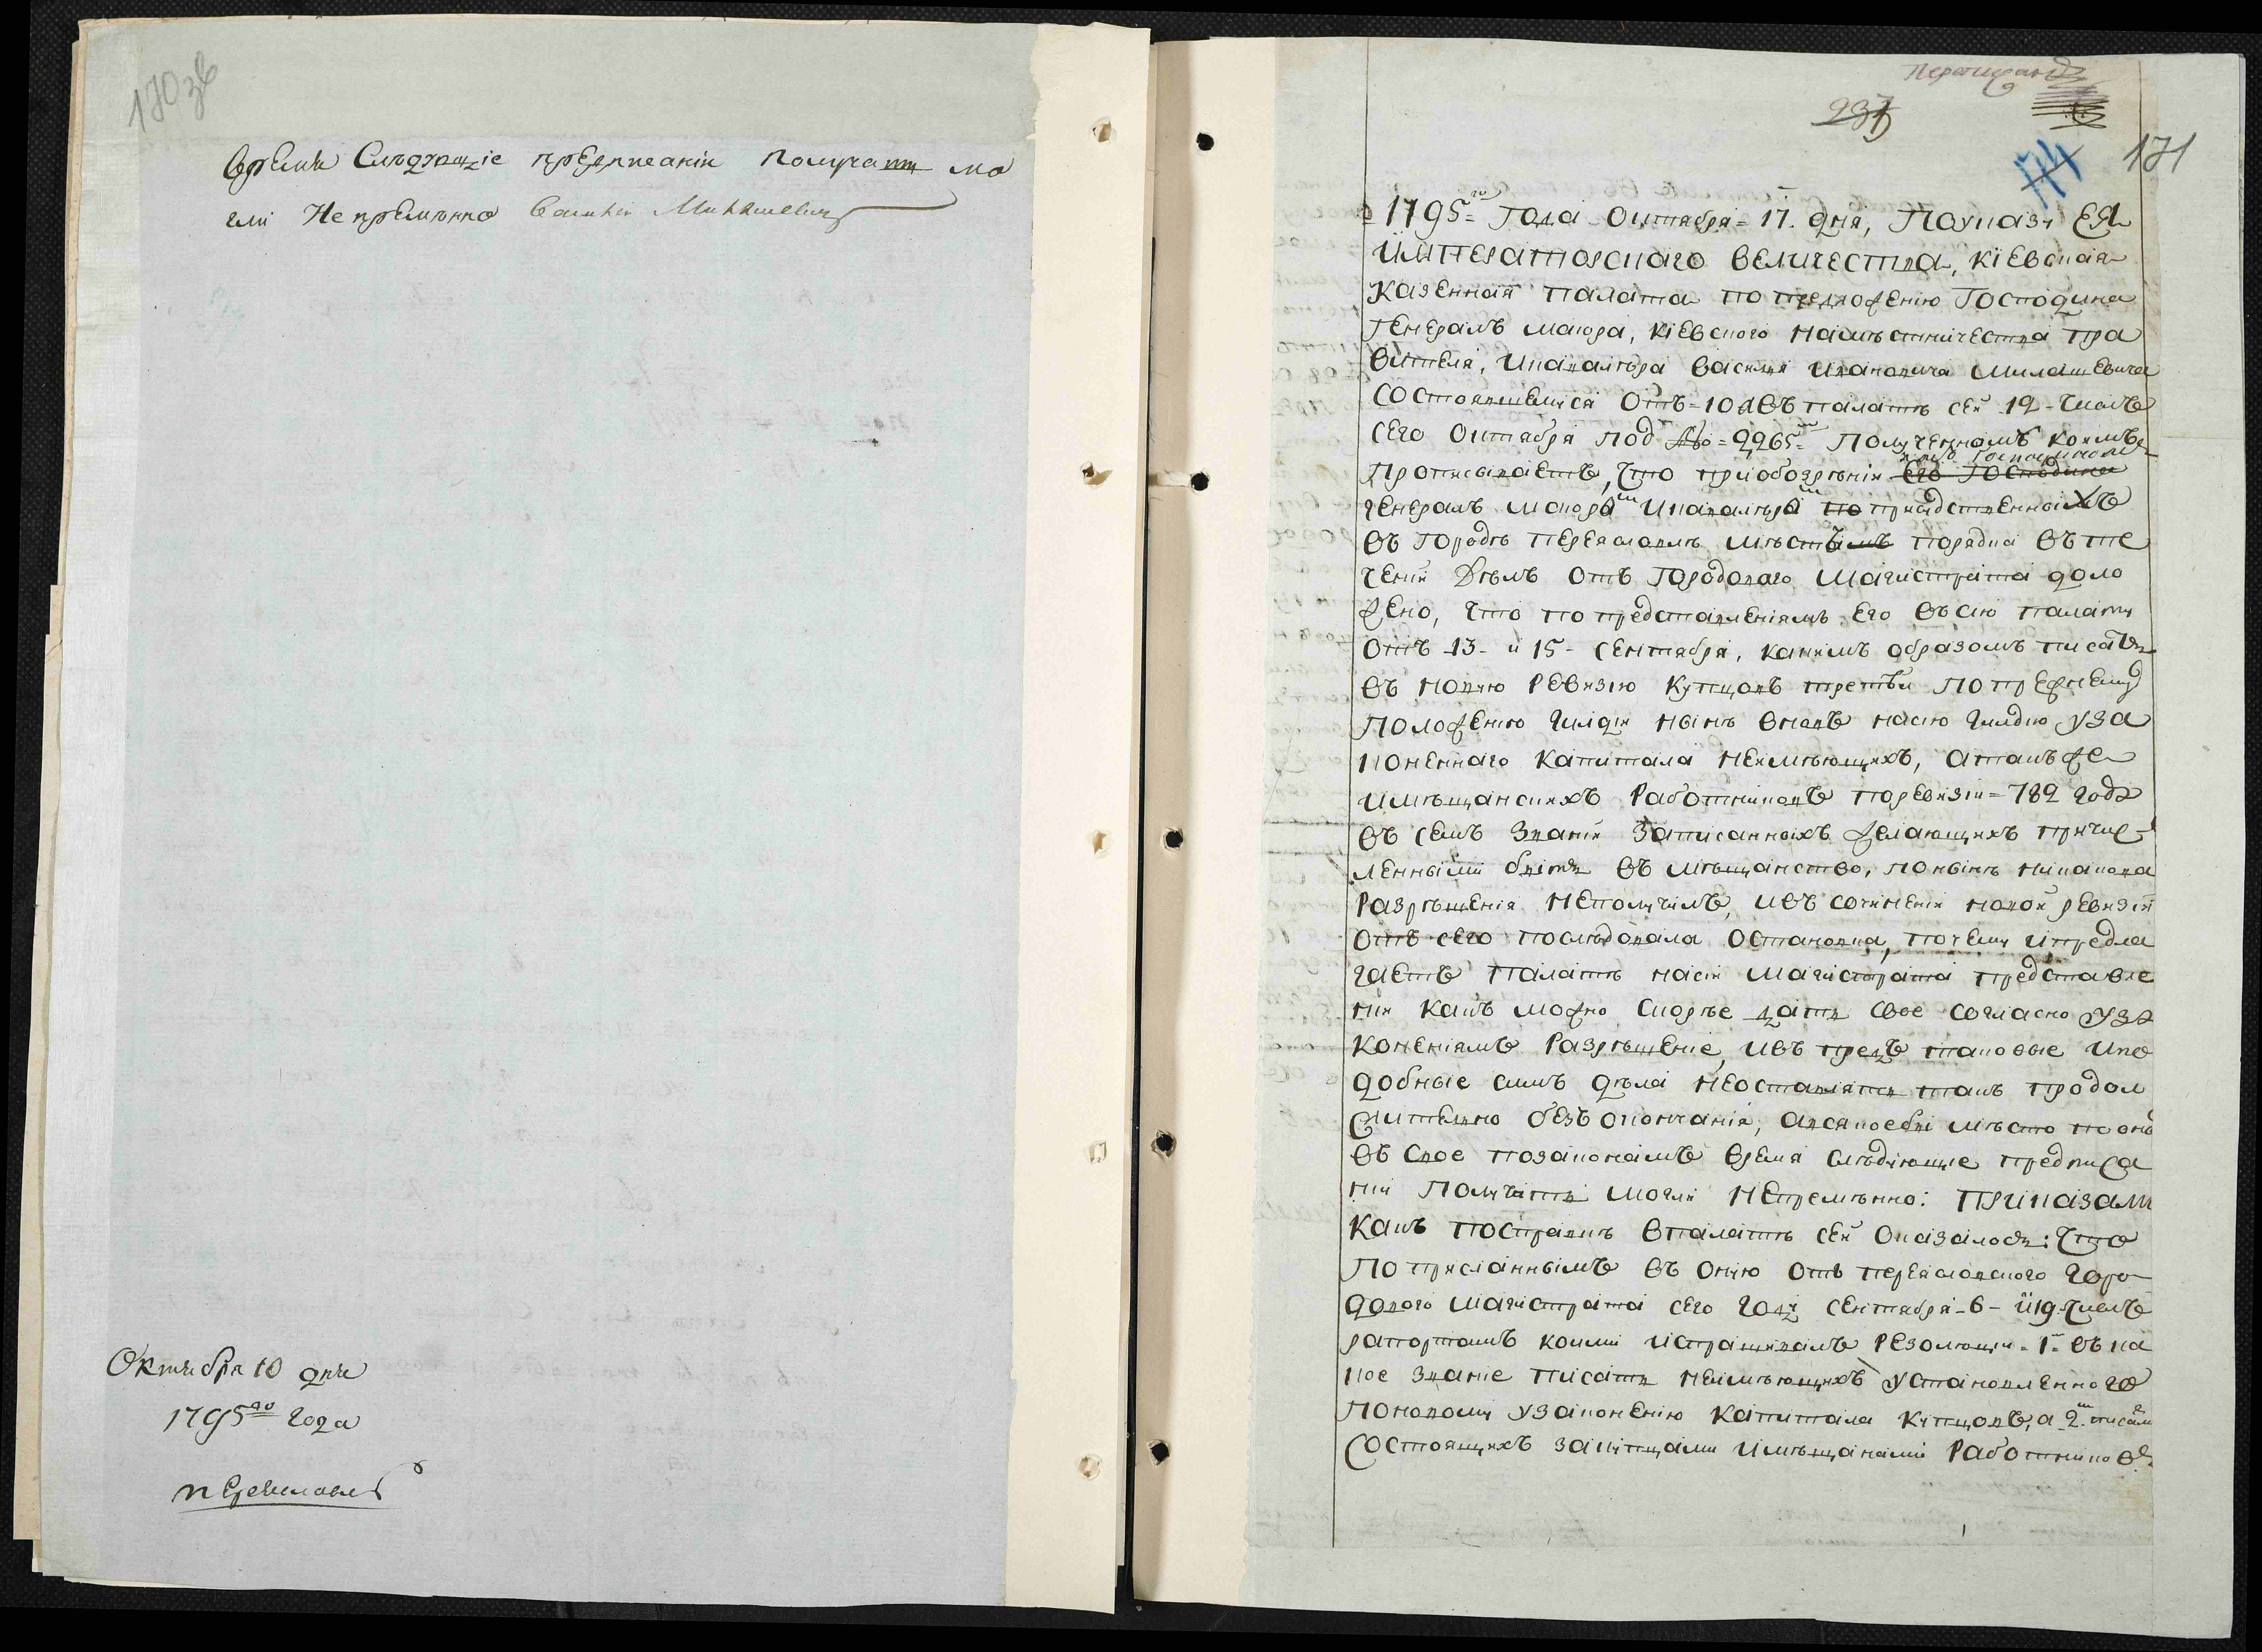 170зв
время Следующіе предписаніи Получать мо
гли Непремѣнно Василій Милашевичь
Октября 10 дня
1795го года
Переяславль
171
1795го Года Октября 17. дня, По указу ЕЯ
ИМПЕРАТОРСКАГО ВЕЛИЧЕСТВА, Кіевская
Казенная палата по предложенію Господина
Генералъ маіора, Кіевского намѣстничества пра
вителя, и кавалѣра Василія Ивановича Милашевича
состоявшемуся отъ 10 а въ палатѣ сей 12 числъ
сего октября под № 2265м Полученномъ коимъ
Прописываетъ, что при обозрѣніи Его Господина
генералъ маіора и кавалѣра по присудственныхъ
въ городѣ Переяславлѣ мѣстъ порядка въ те
ченіи Дѣлъ отъ городоваго магистрата доло
жено, что по представленіямъ его въ сію палату
отъ 13 и 15 сентября, какимъ образомъ писать
въ новую ревизію купцовъ третьи по прежнему
положенію гилдіи нынѣ вновь на сію гилдію уза
коненнаго капитала неимѣющихъ, а такъ же
и мѣщанскихъ работниковъ по ревизіи 782 года
въ семъ званіи записанныхъ желающихъ причис
ленными быть въ мѣщанство, понынѣ никакова
разрѣшенія неполучилъ, и въ сочиненіи новой ревизіи
отъ сего послѣдовала остановка, почему и предла
гаетъ палатѣ на сіи магистрата представле
нии какъ можно скорѣе дать свое согласно уза
коненіямъ разрѣшеніе, и въ предъ таковые и по
добные симъ дѣла неоставлять такъ продол
жительно безъ окончанія, а всякоебы мѣсто по онъ
въ свое по законамъ время слѣдующие предписа
нии Получать могли непремѣнно: Приказали
какъ по справкѣ в палатѣ сей оказалось: что
По присланнымъ въ оную отъ переяславского горо
дового магистрата сего году сентября 6 и 19 числъ
рапортамъ коими испрашивалъ резолюціи 1е въ ка
кое званіе писать неимѣющихъ установленного
по новому узаконенію капитала купцовъ, а 2е писат
состоящихъ за купцами и мѣщанами работниковъ